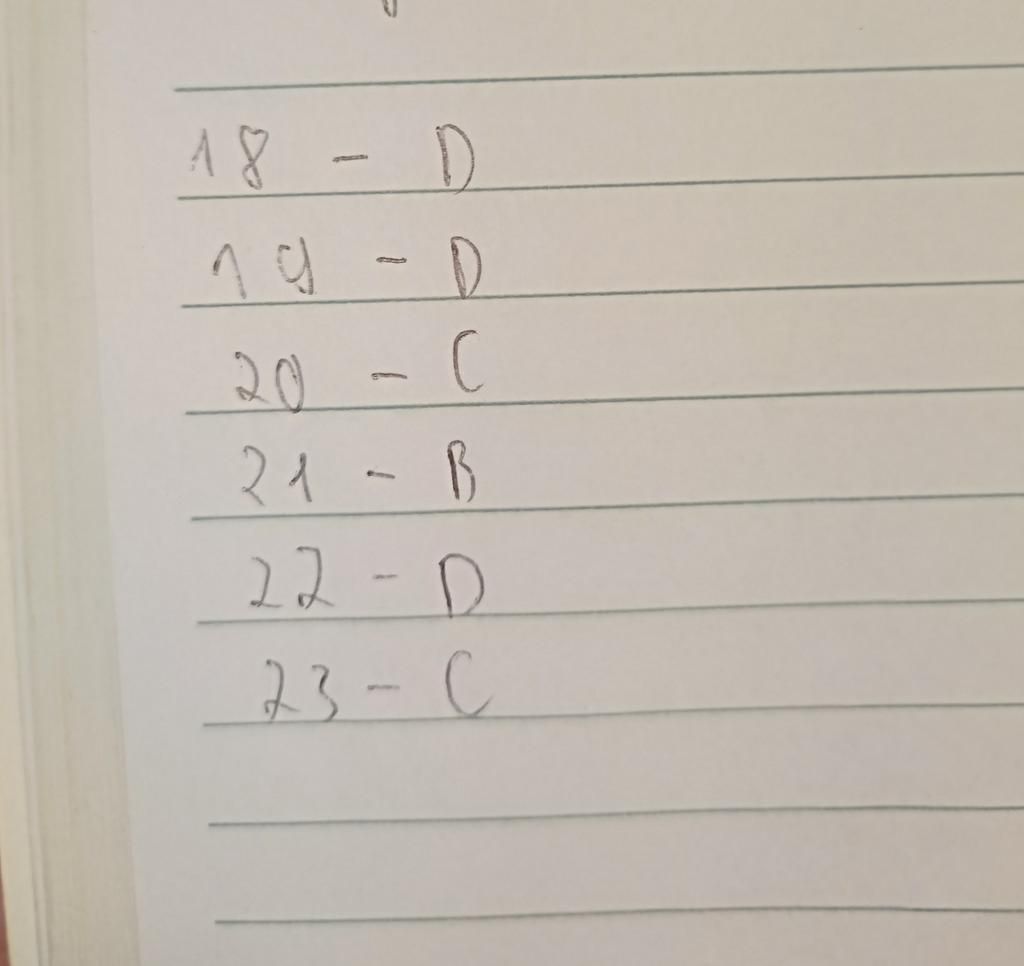 18 - D
19 - D
20 - C
21 - B
22 - D
23 - C